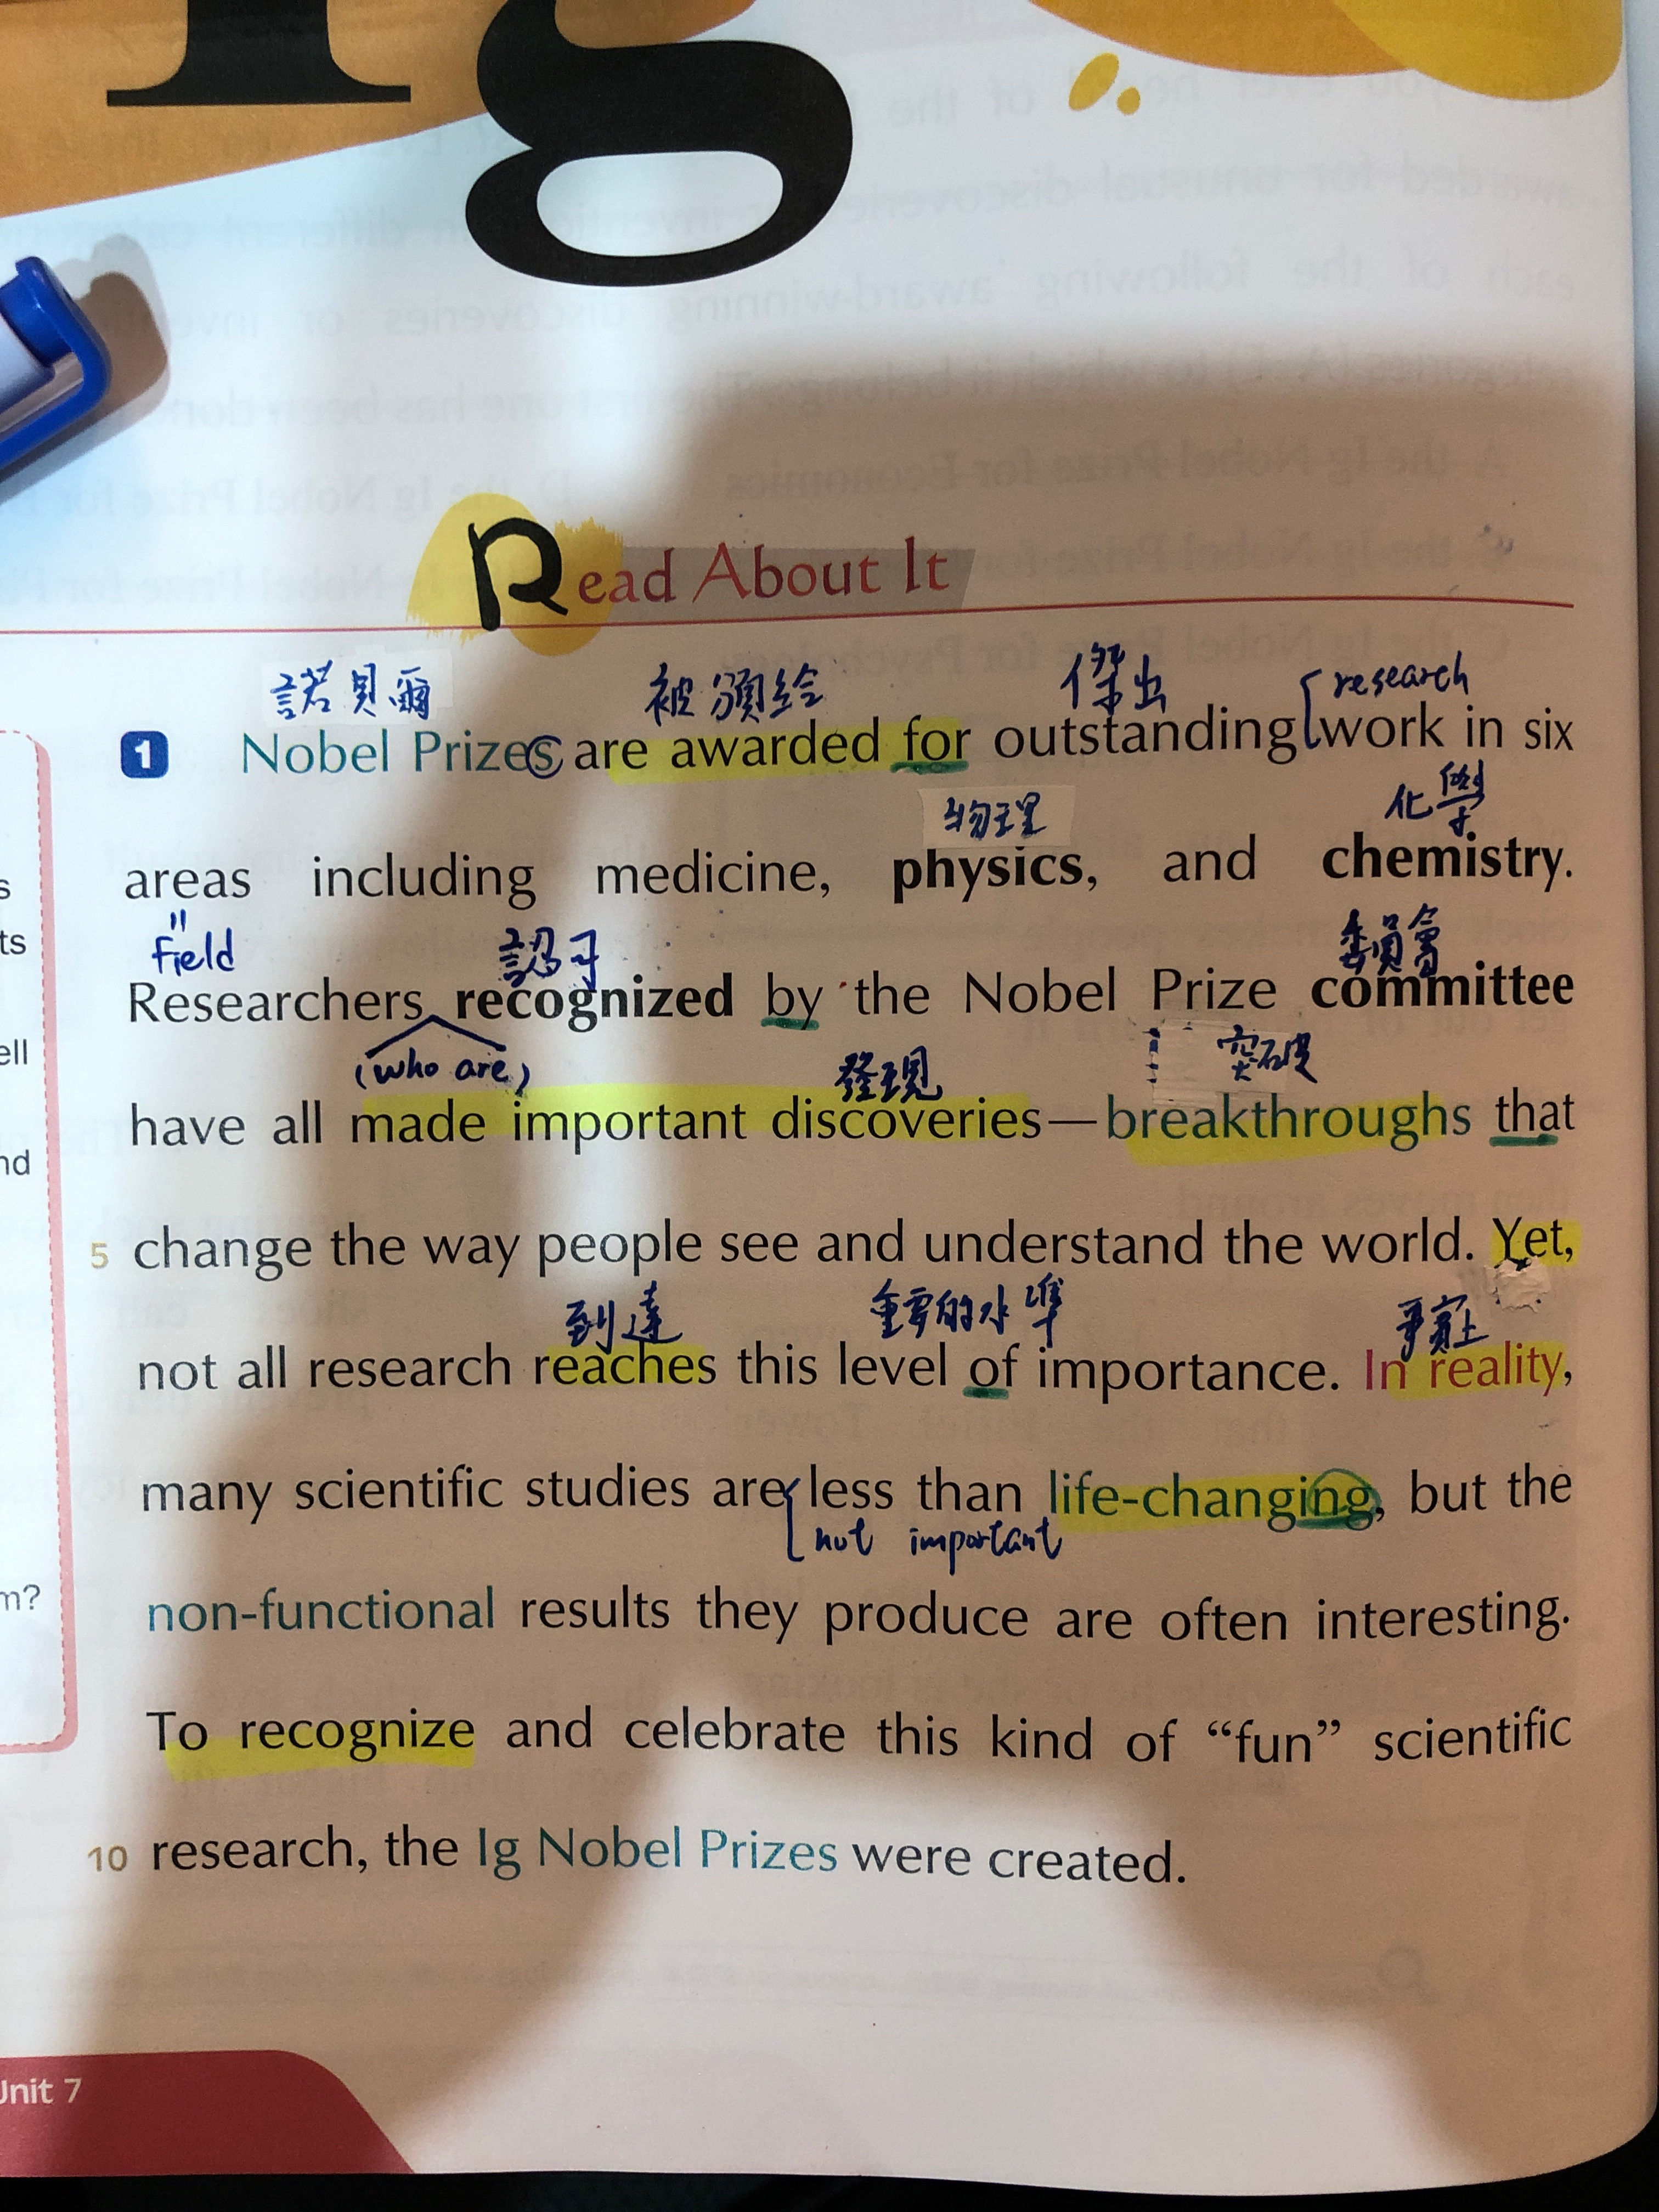 Ig
Read About It
諾貝爾 被頒給 傑出 research
1 Nobel Prizes are awarded for outstanding work in six
物理 化學
areas including medicine, physics, and chemistry.
" field 認可 委員會
Researchers recognized by the Nobel Prize committee
(who are) 發現 突破
have all made important discoveries—breakthroughs that
5 change the way people see and understand the world. Yet,
到達 重要的水準 事實上
not all research reaches this level of importance. In reality,
many scientific studies are less than life-changing, but the
not important
non-functional results they produce are often interesting.
To recognize and celebrate this kind of “fun” scientific
10 research, the Ig Nobel Prizes were created.
s
ts
ell
nd
m?
Unit 7